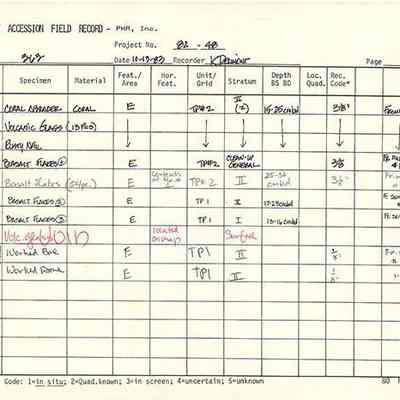 ACCESSION FIELD RECORD - PHR, Inc.
Project No. 82 - 48
Date 10-13-83 Recorder
Page
Specimen Material Feat./ Area Hor. Feat. Unit/ Grid Stratum Depth BS BD Loc. Quad. Rec. Code*
CORAL ABRADER CORAL E TP#2 II (2) 15-25cmbd 3/8"
VOLCANIC GLASS (13 pcs)
BASALT FLAKES (2) E TP#2 CLEAN-UP GENERAL 3/8
Basalt flakes E TP#2 II 25-34 cmbd 3/8"
BASALT FLAKES (3) E TP1 I 17-29cmbd
BASALT FLAKES (3) E TP1 I 13-16cmbd
Volc. located on map Surface
Worked Bone E TP1 II
Worked Bone E TP1 II
Code: 1=in situ; 2=Quad.known; 3=in screen; 4=uncertain; 5=unknown